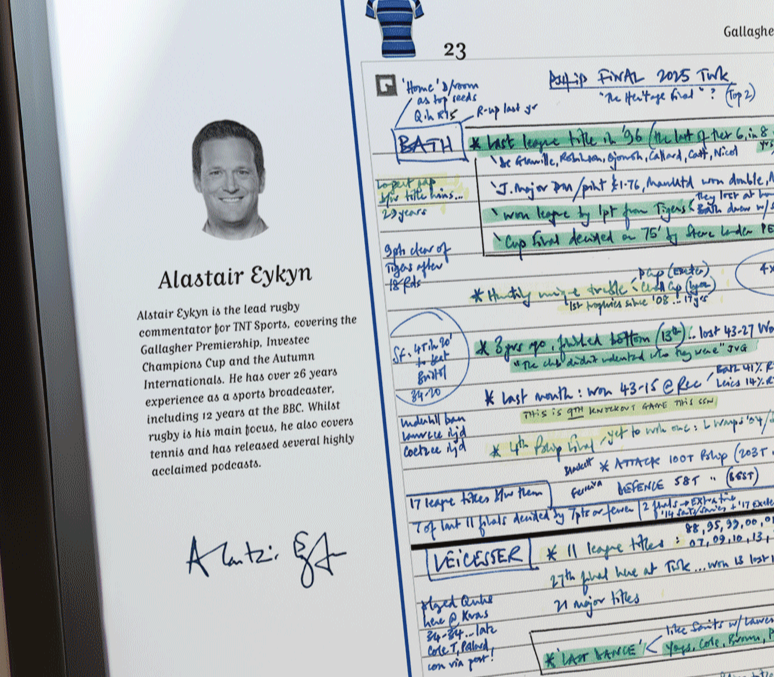 23
Gallaghe
P'ship FINAL 2025 Twk
"The Heritage Final"? (Top 2)
'Home' d/room
as top seeds
R-up last yr
BATH
* Last league title in '96 (the last of their 6, in 8
De Glanville, Robinson, Ojomoh, Callard, Catt, Nicol
Longest gap
b/w title wins...
29 years
'J. Major PM/pint £1.76, Man Utd won double,
'won league by 1pt from Tigers
They lost at
Bath drew w/
'Cup Final decided on 75' by Steve Lander PE
9pts clear of
Tigers after
18 Rds
P Cup (Exeter)
* Hunting unique treble - Chall Cup (Lyon)
1st trophies since '08... 17 yrs
4x
SF. 47 in 20'
to beat
Bristol
34-20
* 3 yrs ago, finished bottom (13th).. lost 43-27 Wo
"The club didn't understand who they were" JVG
* Last month: won 43-15 @ Rec
Bath 41% R
Leics 14% R
THIS IS 9TH KNOCKOUT GAME THIS SSN
Underhill ban
Lawrence injd
Coetzee injd
* 4th P'ship Final, yet to win one: L Wasps '04/
* ATTACK 100T P'ship (203T
Ferreira DEFENCE 58T " (BEST)
17 league titles b/w them
7 of last 11 finals decided by 7pts or fewer
2 finals → Extra time
LEICESTER
* 11 league titles: 88, 95, 99, 00, 01
07, 09, 10, 13,
27th final here at Twk... won 13 lost
21 major titles
played Quins
here @ Xmas
34-34... late
Cole T, Pollard
con via post!
* 'LAST DANCE'
like Saints w/ Lawes
Youngs, Cole,
Alastair Eykyn
Alstair Eykyn is the lead rugby
commentator for TNT Sports, covering the
Gallagher Premiership, Investec
Champions Cup and the Autumn
Internationals. He has over 26 years
experience as a sports broadcaster,
including 12 years at the BBC. Whilst
rugby is his main focus, he also covers
tennis and has released several highly
acclaimed podcasts.